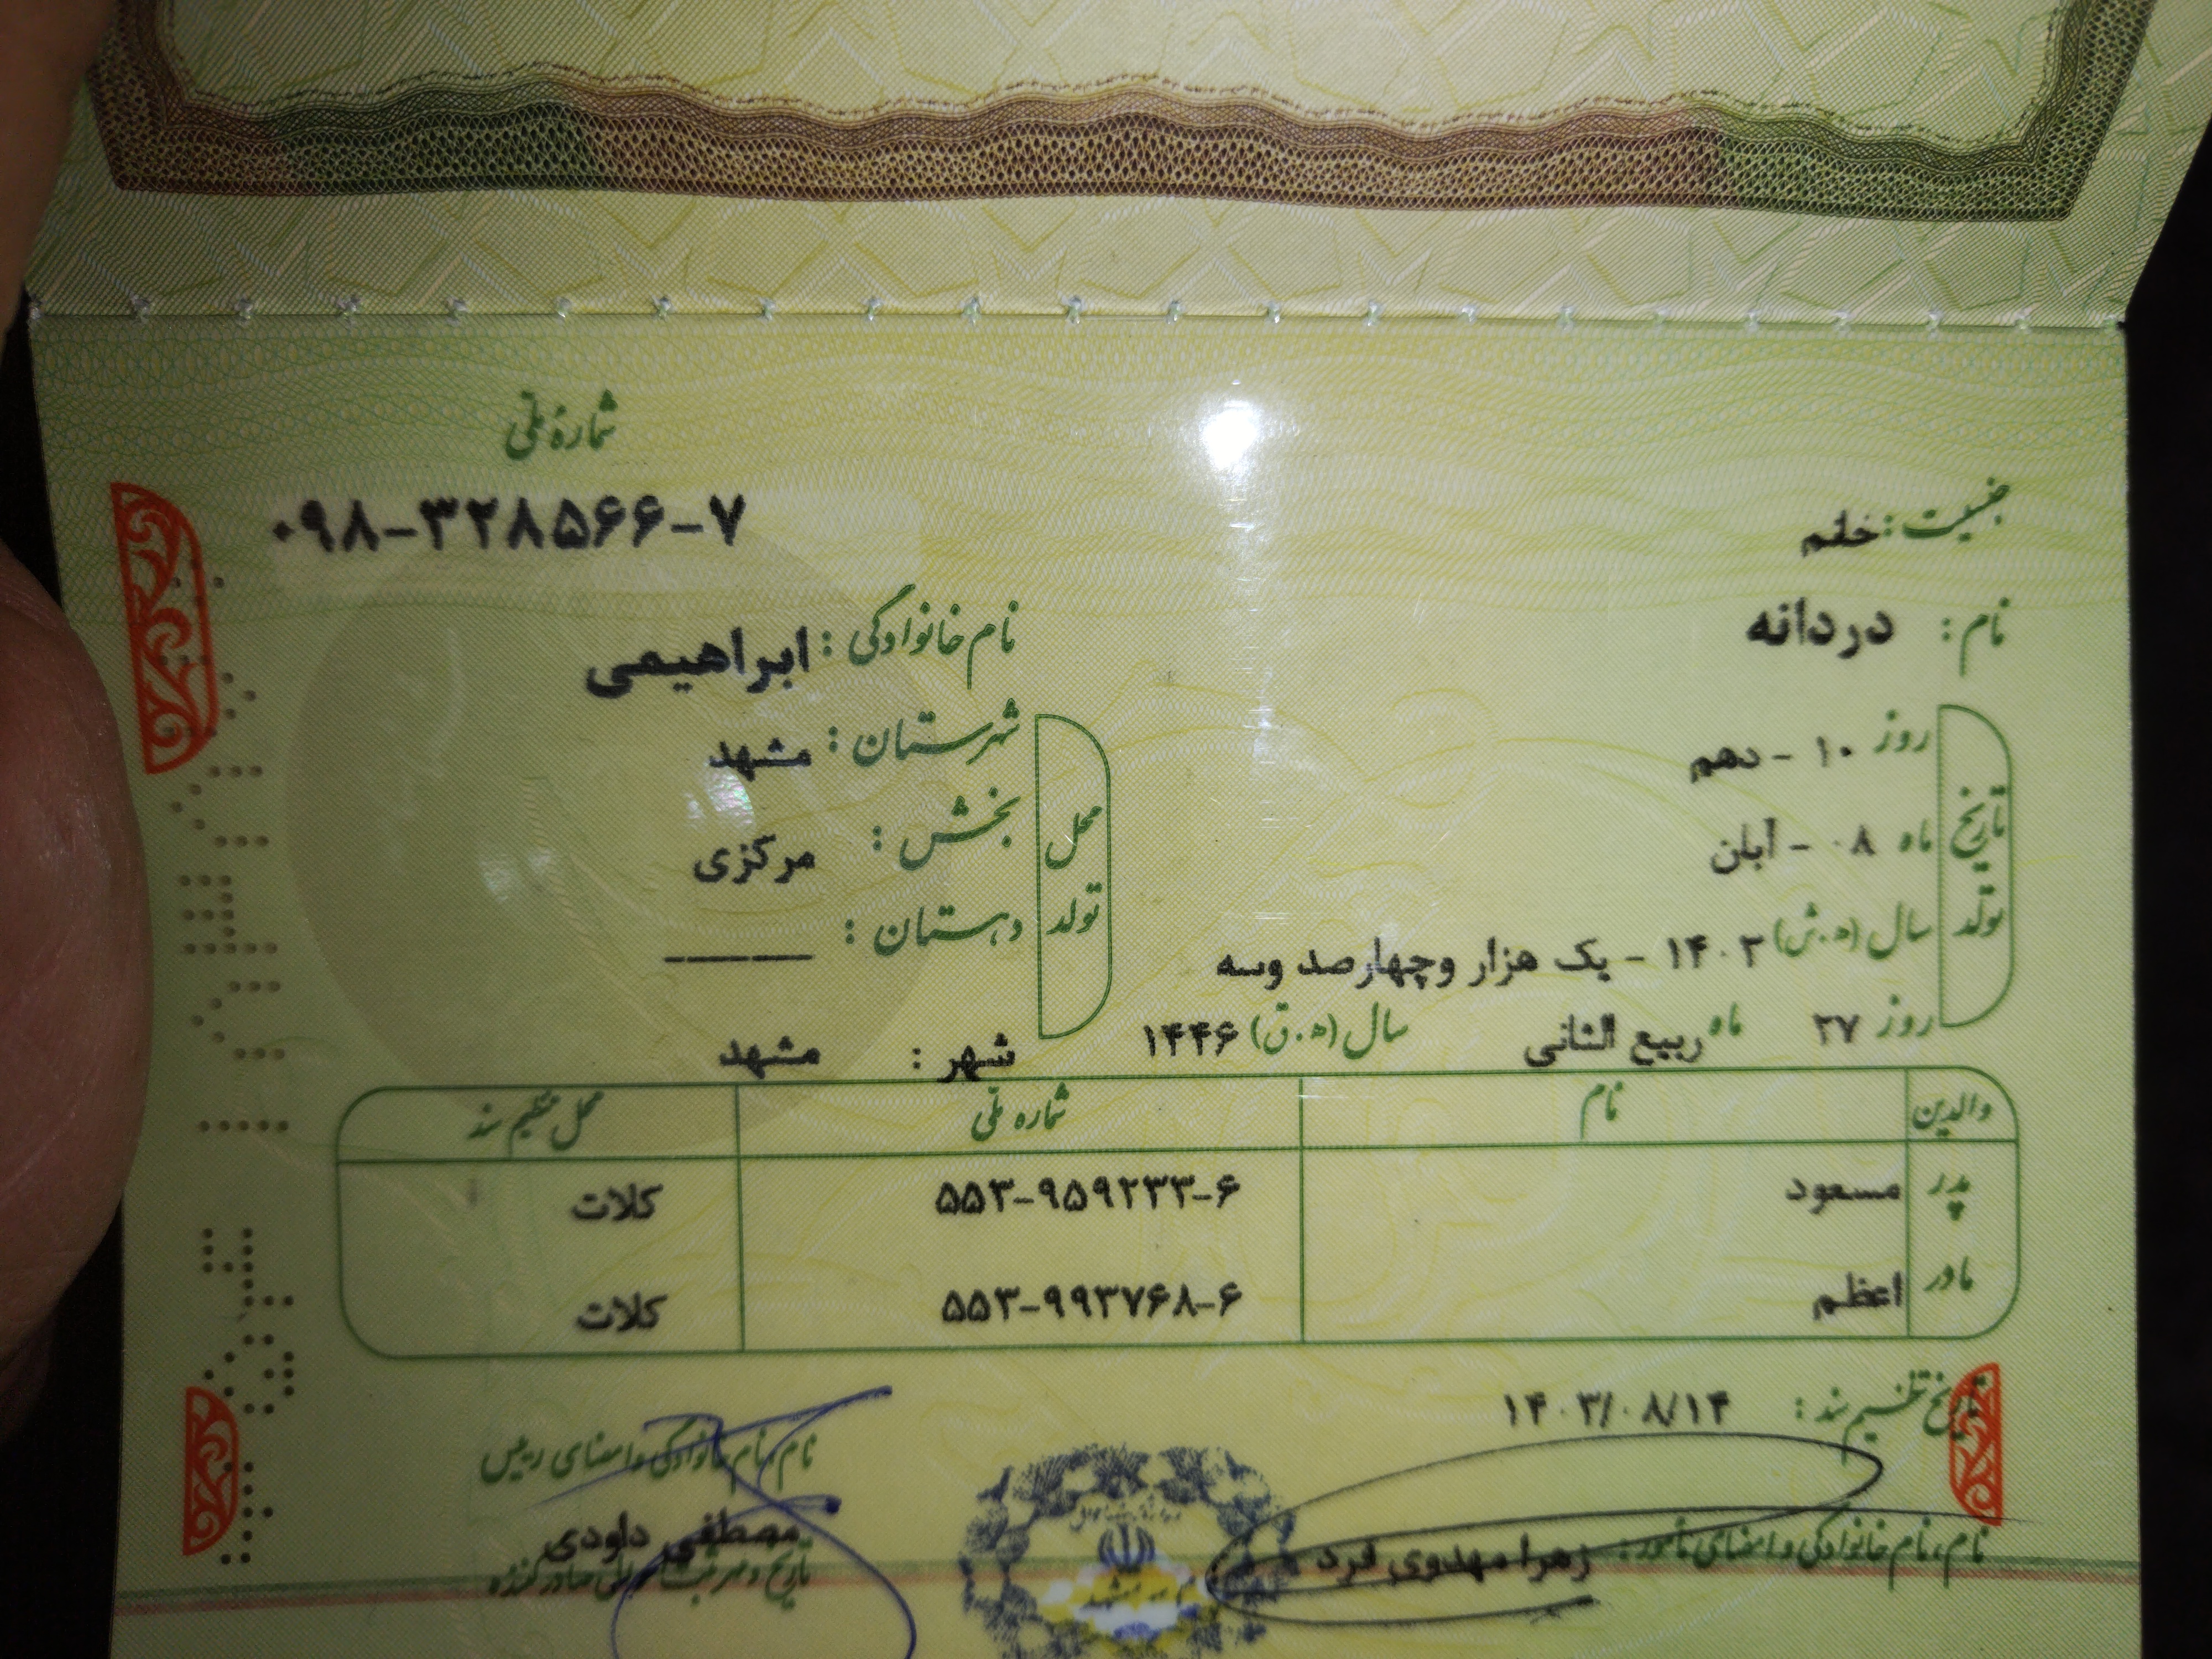 شماره ملی
۰۹۸-۳۲۸۵۶۶-۷
جنسیت: خانم
نام: دردانه
نام خانوادگی: ابراهیمی
تاریخ تولد
روز ۱۰ - دهم
ماه ۰۸ - آبان
سال (ه.ش) ۱۴۰۳ - یک هزار وچهارصد وسه
روز ۲۷ ماه ربیع الثانی سال (ه.ق) ۱۴۴۶
محل تولد
شهرستان: مشهد
بخش: مرکزی
دهستان: ______
شهر: مشهد
والدین نام شماره ملی محل تنظیم سند
پدر مسعود ۵۵۳-۹۵۹۲۳۳-۶ کلات
مادر اعظم ۵۵۳-۹۹۳۷۶۸-۶ کلات
تاریخ تنظیم سند: ۱۴۰۳/۰۸/۱۴
نام، نام خانوادگی و امضای مأمور: زهرا مهدوی فرد
نام، نام خانوادگی و امضای رییس
مصطفی داودی